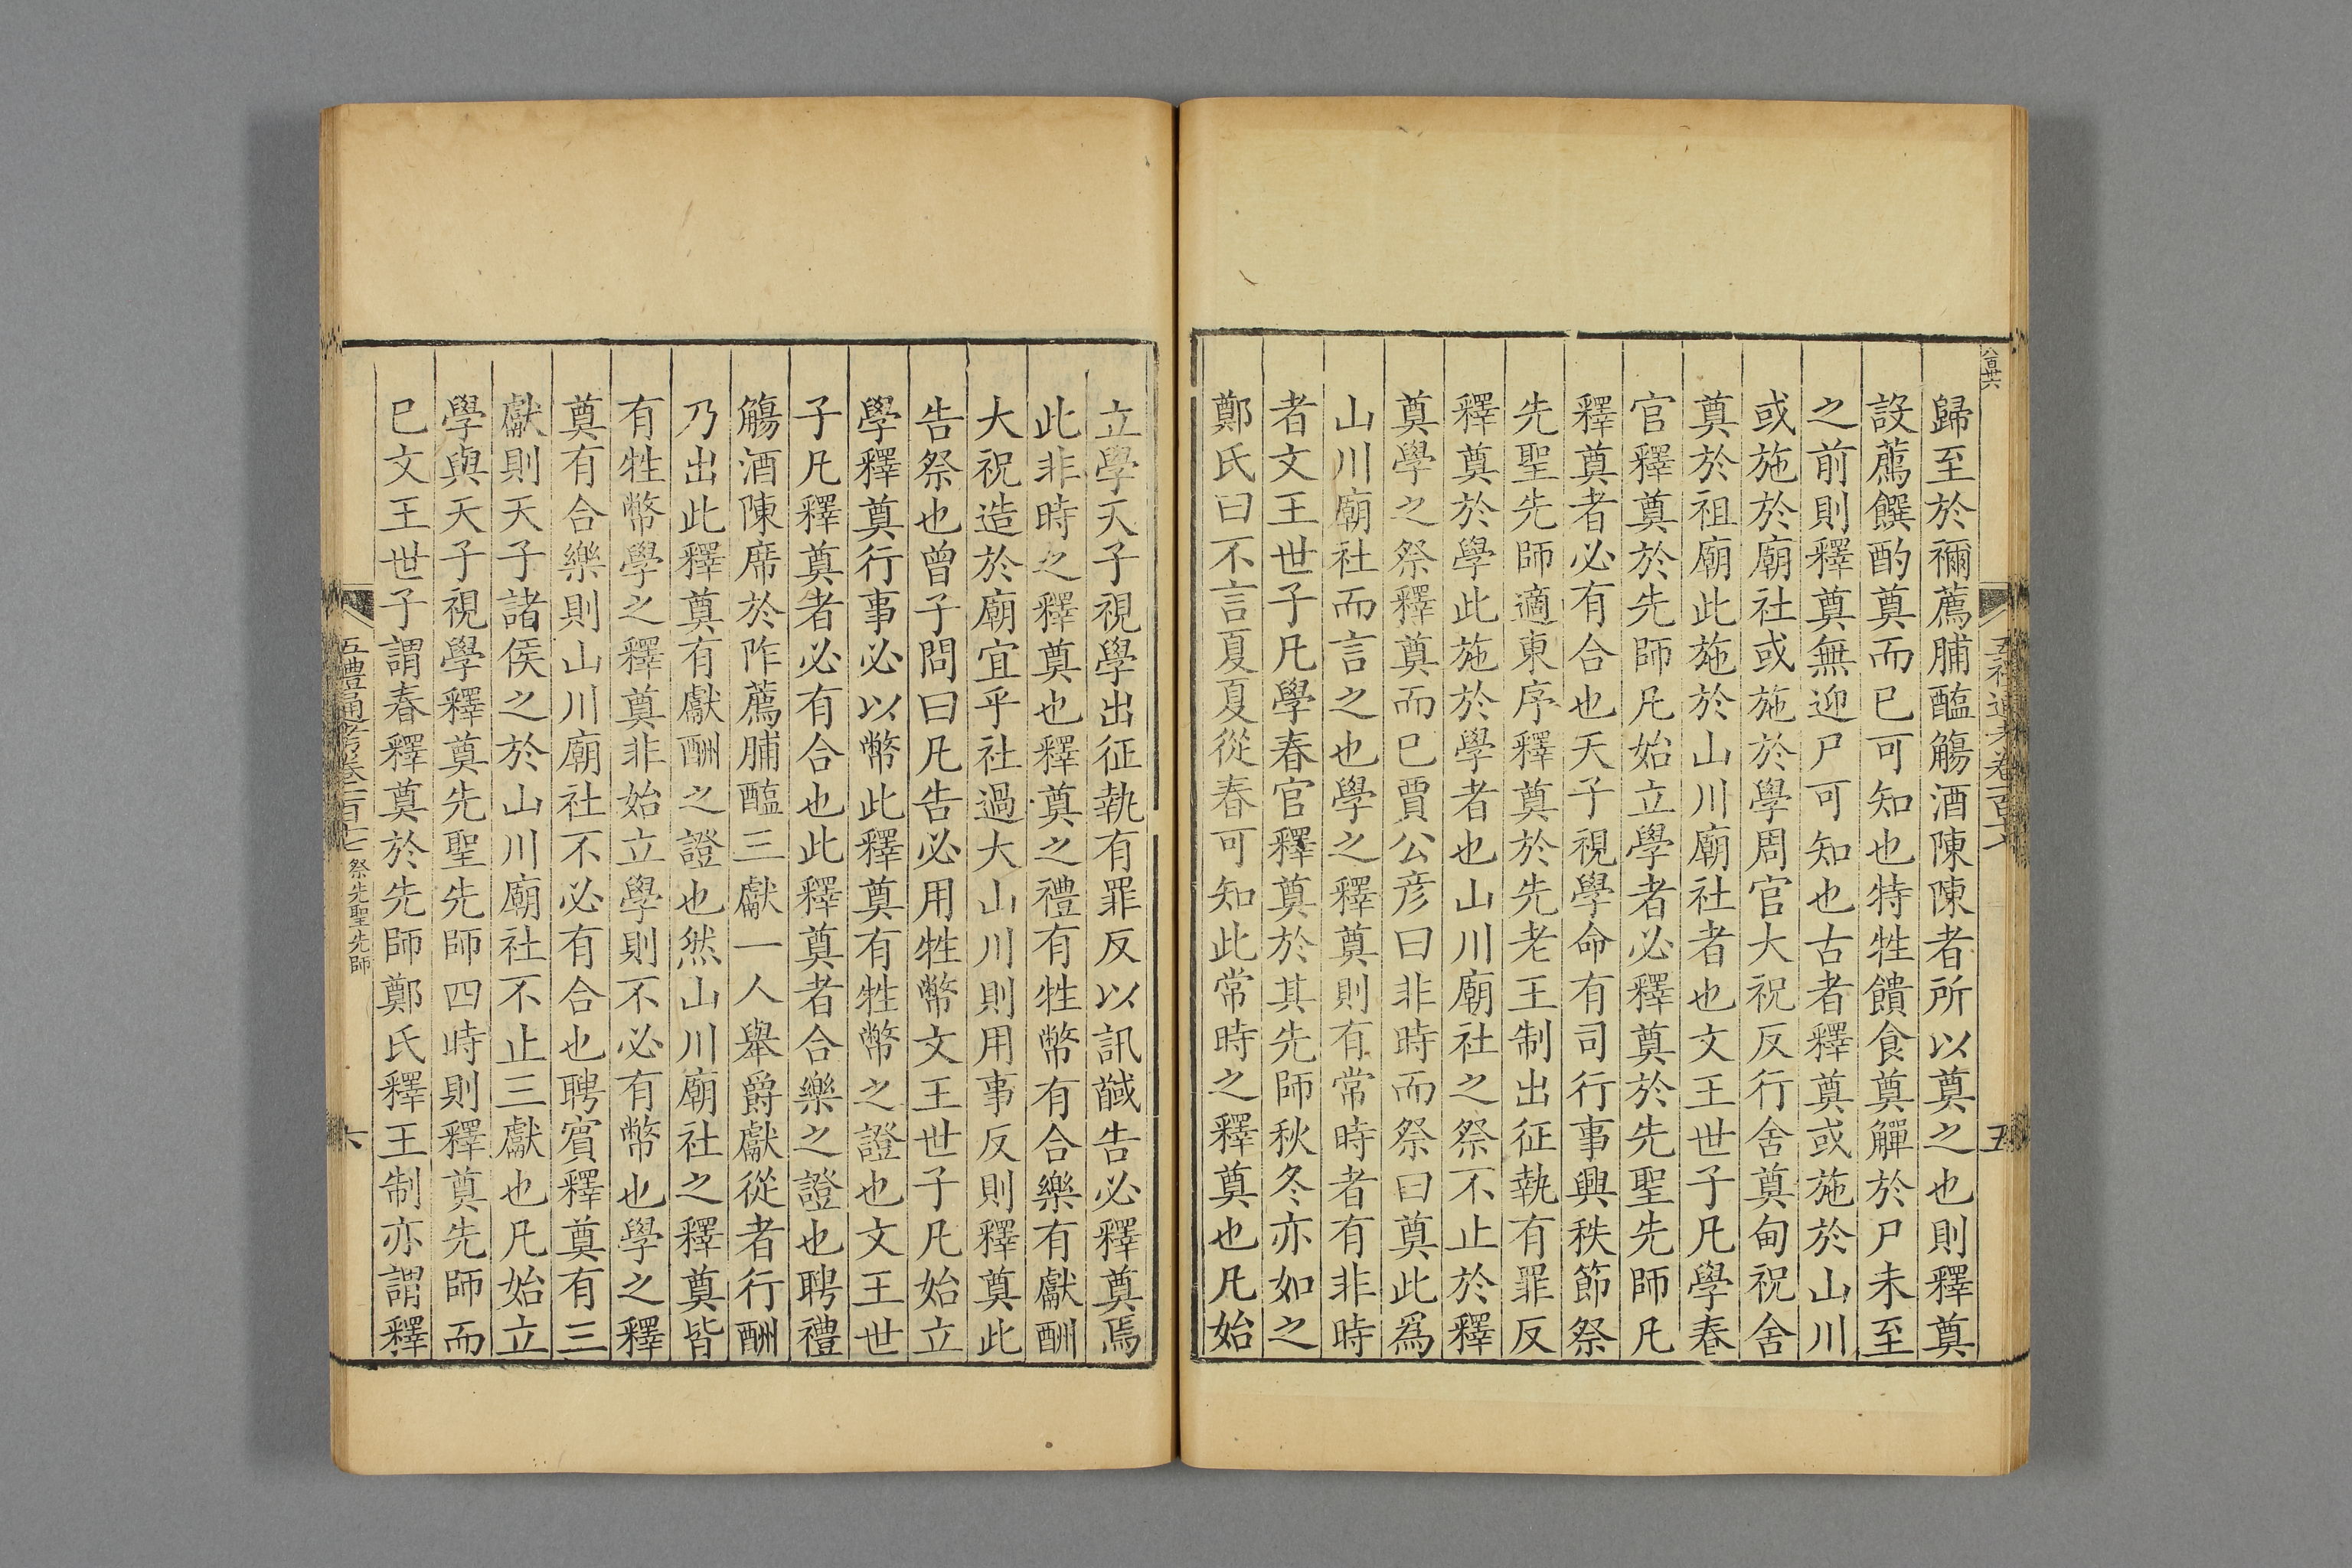 八百廿六
歸至於禰薦脯醢觴酒陳陳者所以奠之也則釋奠
設薦饌酌奠而已可知也特牲饋食奠觶於尸未至
之前則釋奠無迎尸可知也古者釋奠或施於山川
或施於廟社或施於學周官大祝反行舍奠甸祝舍
奠於祖廟此施於山川廟社者也文王世子凡學春
官釋奠於先師凡始立學者必釋奠於先聖先師凡
釋奠者必有合也天子視學命有司行事興秩節祭
先聖先師適東序釋奠於先老王制出征執有罪反
釋奠於學此施於學者也山川廟社之祭不止於釋
奠學之祭釋奠而已賈公彥曰非時而祭曰奠此爲
山川廟社而言之也學之釋奠則有常時者有非時
者文王世子凡學春官釋奠於其先師秋冬亦如之
鄭氏曰不言夏夏從春可知此常時之釋奠也凡始
立學天子視學出征執有罪反以訊馘告必釋奠焉
此非時之釋奠也釋奠之禮有牲幣有合樂有獻酬
大祝造於廟宜乎社過大山川則用事反則釋奠此
告祭也曾子問曰凡告必用牲幣文王世子凡始立
學釋奠行事必以幣此釋奠有牲幣之證也文王世
子凡釋奠者必有合也此釋奠者合樂之證也聘禮
觴酒陳席於阼薦脯醢三獻一人舉爵獻從者行酬
乃出此釋奠有獻酬之證也然山川廟社之釋奠皆
有牲幣學之釋奠非始立學則不必有幣也學之釋
奠有合樂則山川廟社不必有合也聘賓釋奠有三
獻則天子諸侯之於山川廟社不止三獻也凡始立
學與天子視學釋奠先聖先師四時則釋奠先師而
已文王世子謂春釋奠於先師鄭氏釋王制亦謂釋
五禮通考卷一百十七 祭先聖先師 六